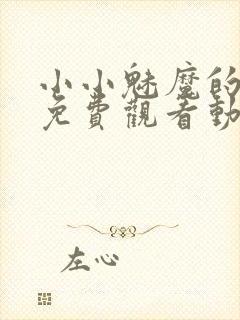 小小魅魔的
免費觀看動
左心